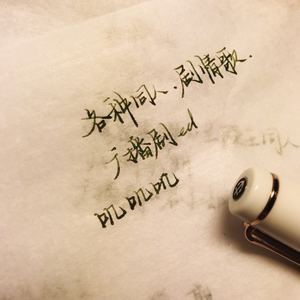 各种同人.剧情歌.
广播剧ed
叽叽叽